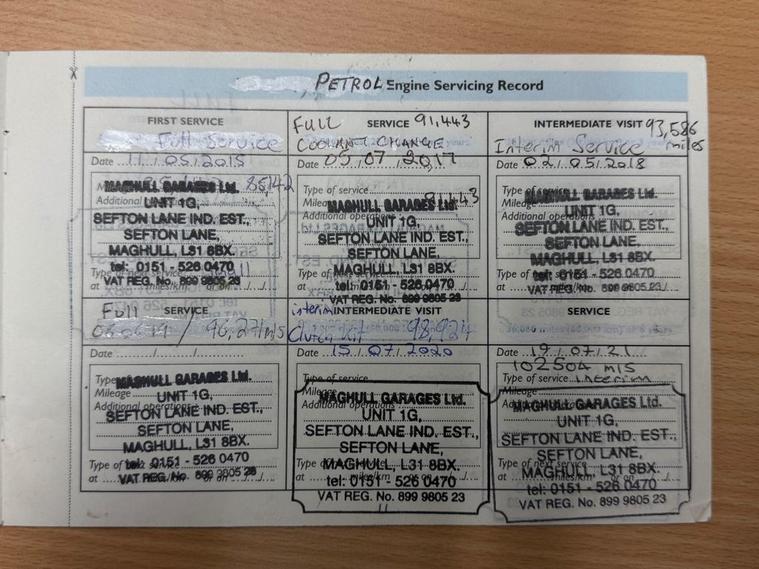 PETROL Engine Servicing Record
FIRST SERVICE
Full Service
Date 11/05/2015
85142
Mileage
Additional
MAGHULL GARAGES Ltd.
UNIT 1G,
SEFTON LANE IND. EST.,
SEFTON LANE,
MAGHULL, L31 8BX.
tel: 0151 - 526 0470
VAT REG. No. 899 9805 23
FULL SERVICE 91,443
COOLANT CHANGE
Date 05/07/2017
Type of service
Mileage 91443
Additional operations
MAGHULL GARAGES Ltd.
UNIT 1G,
SEFTON LANE IND. EST.,
SEFTON LANE,
MAGHULL, L31 8BX.
tel: 0151 - 526 0470
VAT REG. No. 899 9805 23
INTERMEDIATE VISIT 93,586 miles
Interim Service
Date 02/05/2018
Type of service
Mileage
Additional operations
MAGHULL GARAGES Ltd.
UNIT 1G,
SEFTON LANE IND. EST.,
SEFTON LANE,
MAGHULL, L31 8BX.
tel: 0151 - 526 0470
VAT REG. No. 899 9805 23
Full SERVICE
Date
Type of service
Mileage
Additional operations
MAGHULL GARAGES Ltd.
UNIT 1G,
SEFTON LANE IND. EST.,
SEFTON LANE,
MAGHULL, L31 8BX.
tel: 0151 - 526 0470
VAT REG. No. 899 9805 23
interim INTERMEDIATE VISIT
Clutch kit 98,924
Date 15/07/2020
Type of service
Mileage
Additional operations
MAGHULL GARAGES Ltd.
UNIT 1G,
SEFTON LANE IND. EST.,
SEFTON LANE,
MAGHULL, L31 8BX.
tel: 0151 - 526 0470
VAT REG. No. 899 9805 23
SERVICE
Date 19/07/21
102504 mls
Type of service Interim
Mileage
MAGHULL GARAGES Ltd.
UNIT 1G,
SEFTON LANE IND. EST.,
SEFTON LANE,
MAGHULL, L31 8BX.
tel: 0151 - 526 0470
VAT REG. No. 899 9805 23